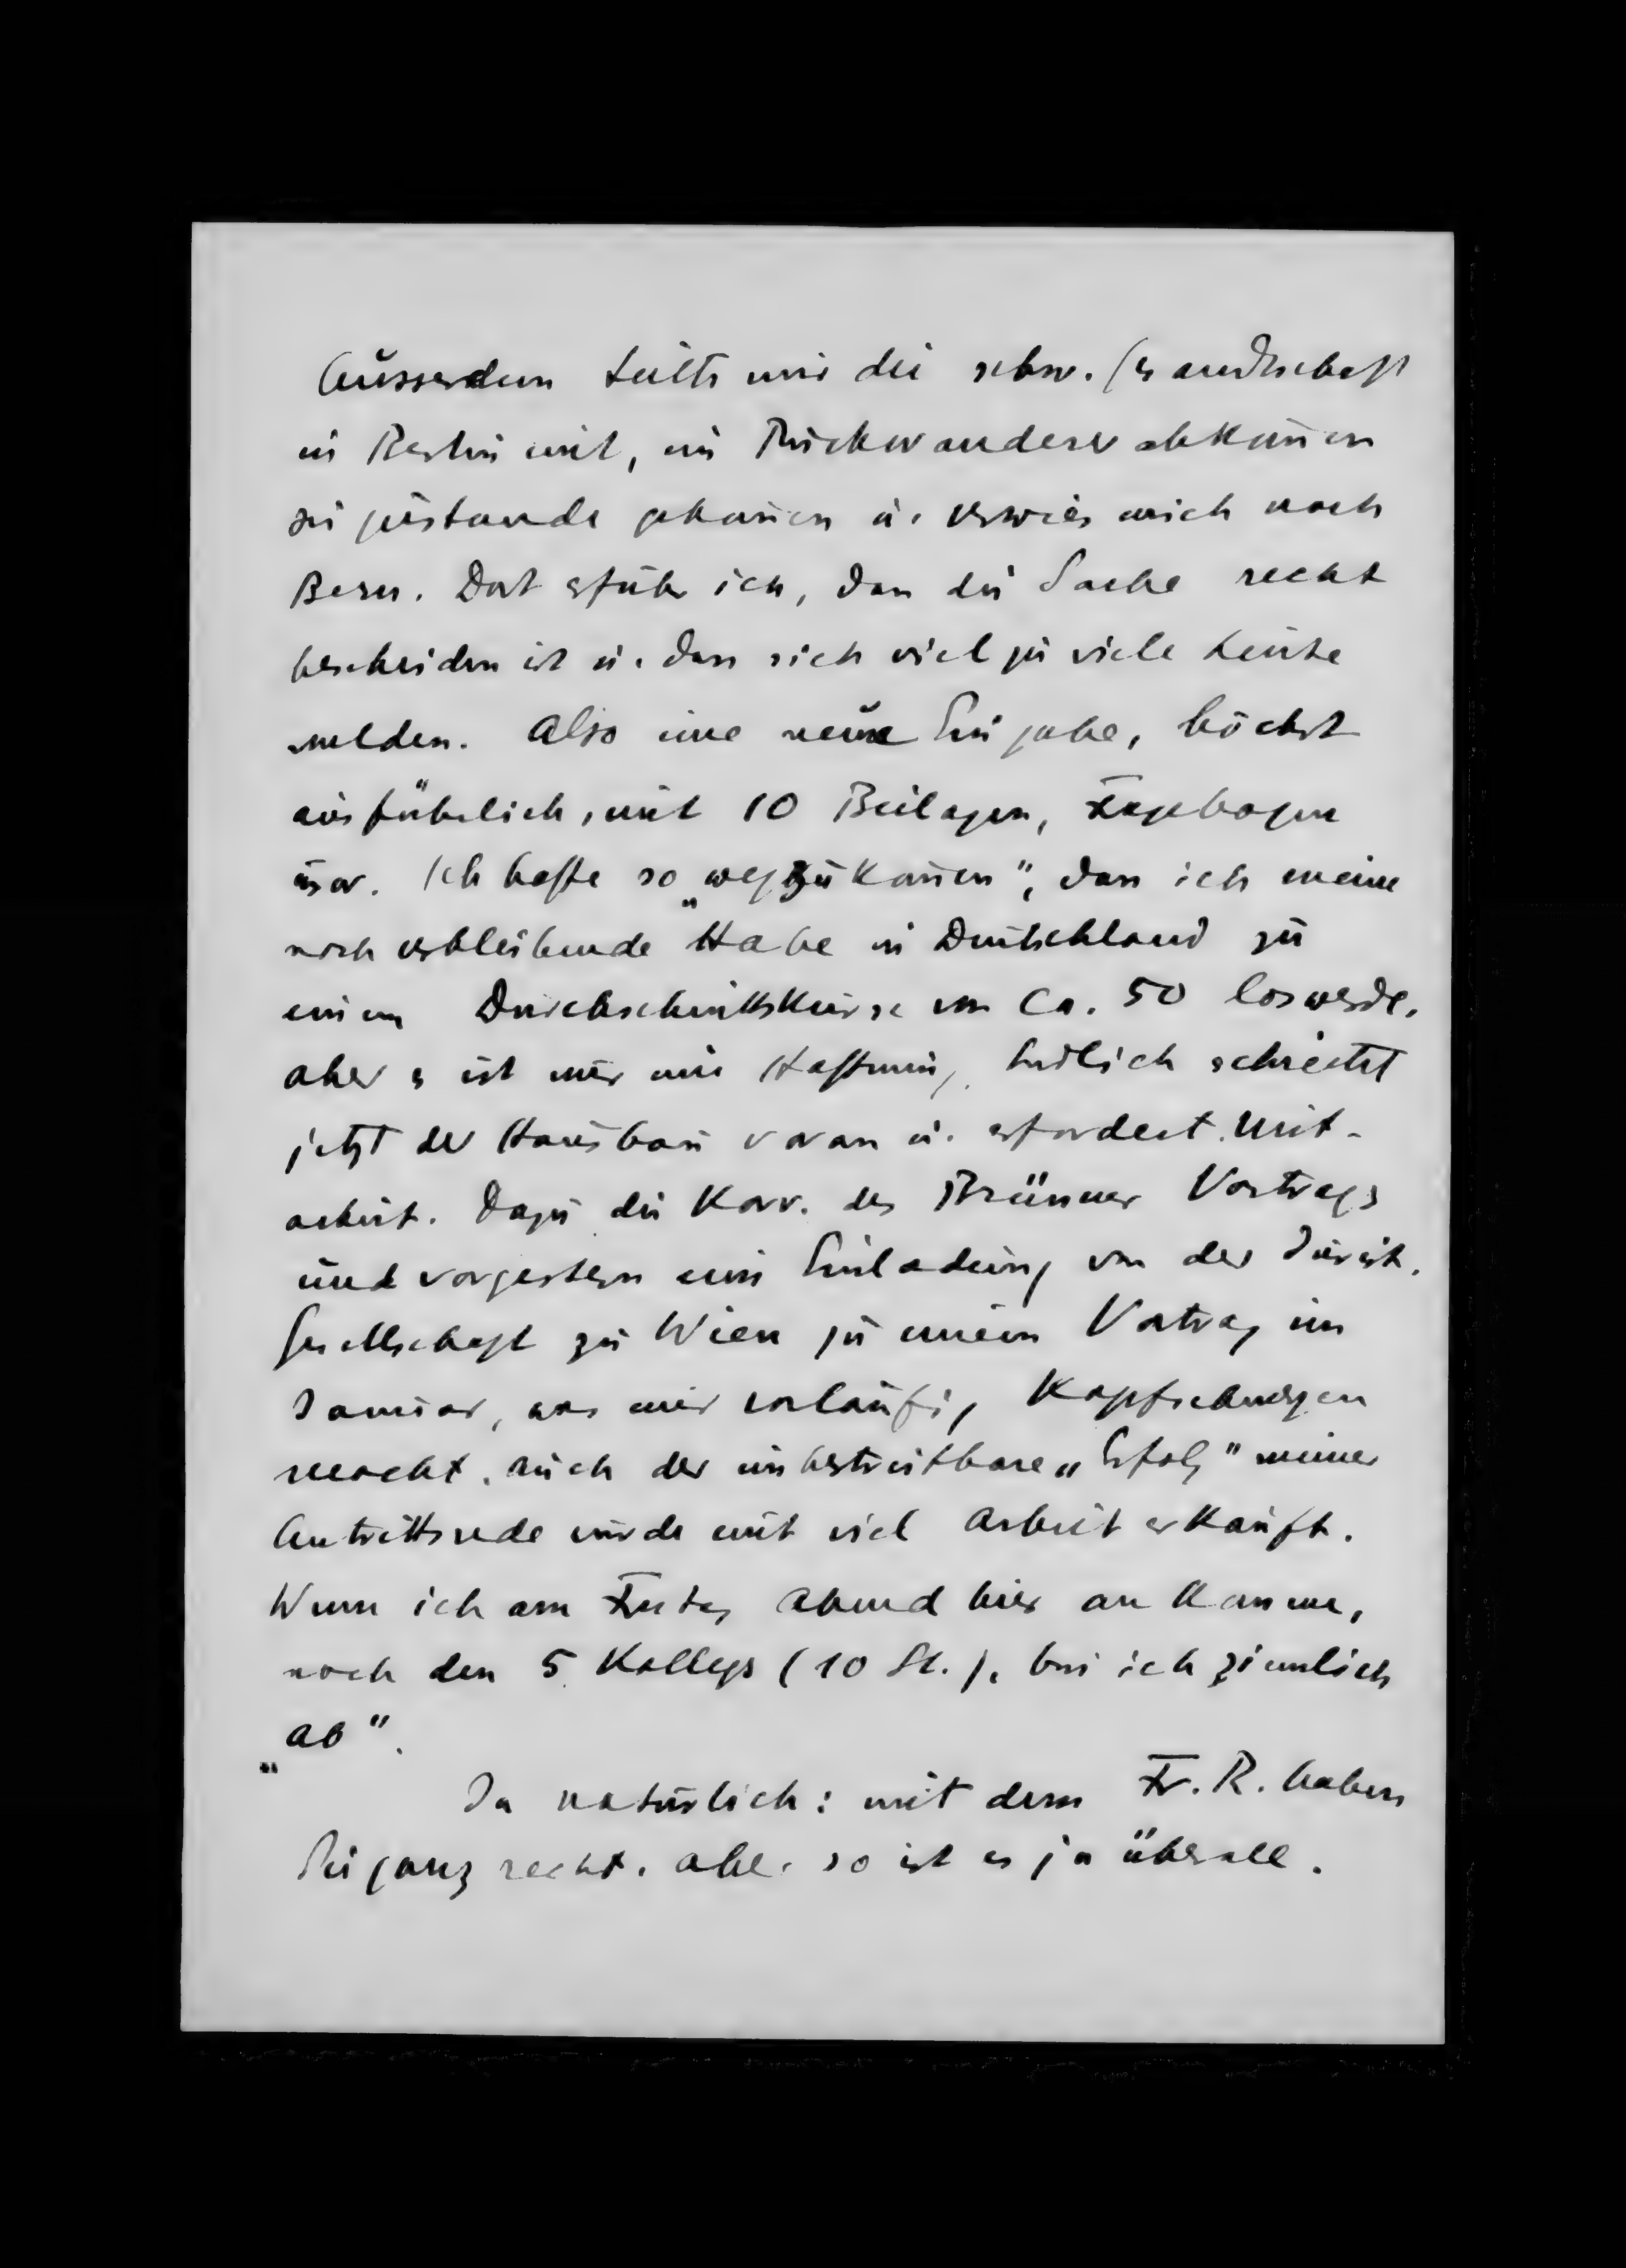 Ausserdem teilte mir die schw. Gesandtschaft
in Berlin mit, ein Rückwandererabkommen
sei zustande gekommen u. verwies mich nach
Bern. Dort erfuhr ich, dass die Sache recht
bescheiden ist u. dass sich viel zu viele Leute
melden. Also eine neue Eingabe, höchst
ausführlich, mit 10 Beilagen, Fragebogen
usw. Ich hoffe so „wegzukommen", dass ich meine
noch verbleibende Habe in Deutschland zu
einem Durchschnittskurse von ca. 50 loswerde.
Aber es ist nur eine Hoffnung. Endlich schreitet
jetzt der Hausbau voran u. erfordert Mit-
arbeit. Dazu die Korr. des Brünner Vortrags
und vorgestern eine Einladung von der Jurist.
Gesellschaft zu Wien zu einem Vortrag im
Januar, was mir vorläufig Kopfschmerzen
macht. Auch der unbestreitbare „Erfolg" meiner
Antrittsrede wurde mit viel Arbeit erkauft.
Wenn ich am Freitag Abend hier ankomme,
nach den 5 Kollegs (10 St.), bin ich ziemlich
„ab".
Ja natürlich: mit dem Fr. R. haben
Sie ganz recht. Aber so ist es ja überall.